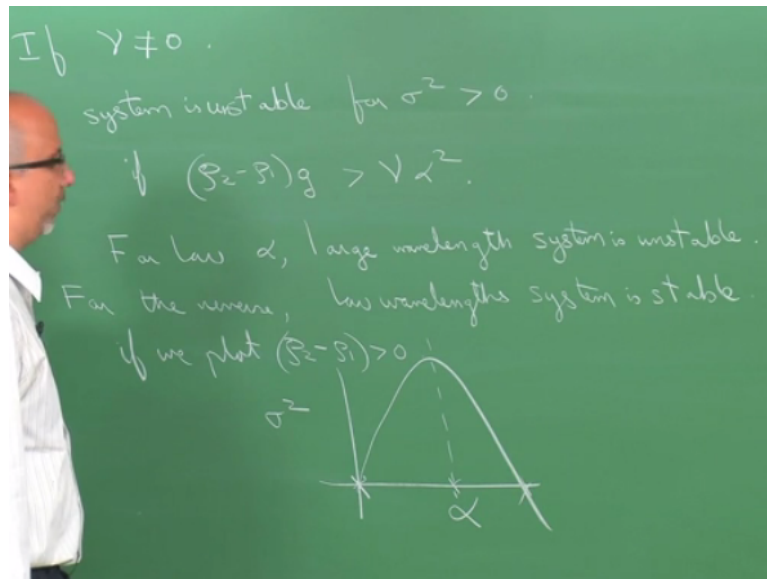 If γ ≠ 0.
system is unstable for σ² > 0.
if (ρ₂-ρ₁)g > γα².
For low α, large wavelength system is unstable.
For the reverse, low wavelengths system is stable.
if we plot (ρ₂-ρ₁)>0
σ²
α